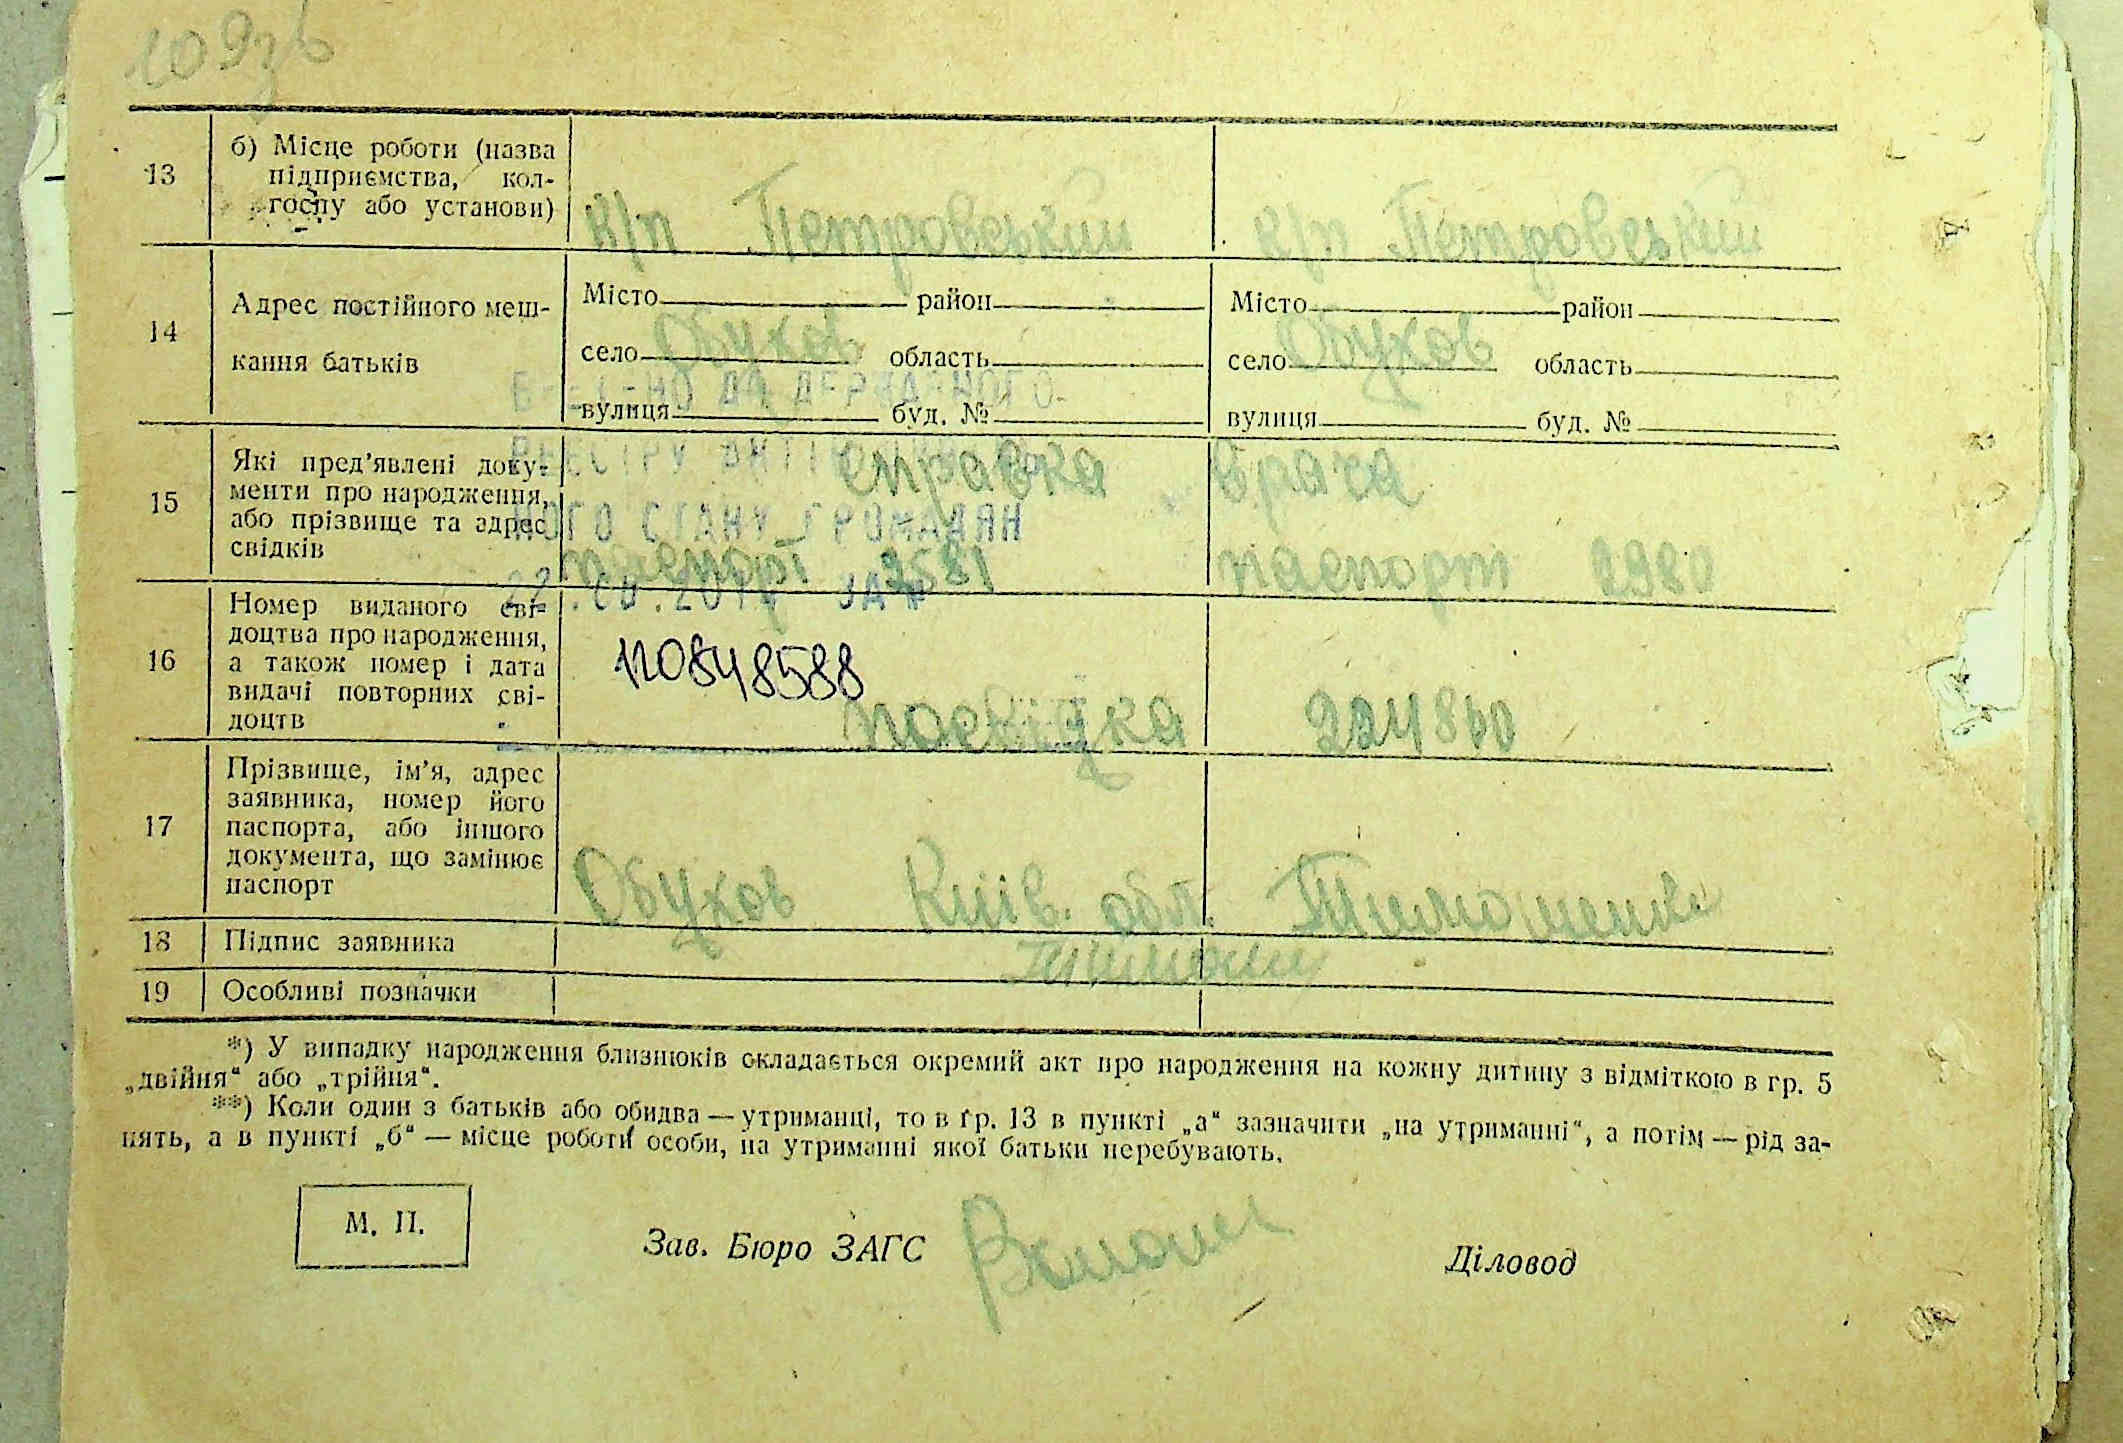 109зв
13
б) Місце роботи (назва
підприємства, кол-
госпу або установи)
к/п Петровський
к/п Петровський
14
Адрес постійного меш-
кання батьків
Місто район
село Обухов область
вулиця буд. №
Місто район
село Обухов область
вулиця буд. №
15
Які пред'явлені доку-
менти про народження,
або прізвище та адрес
свідків
справка врача
паспорт 2581
паспорт 2980
ДО ДЕРЖАВНОГО
РЕЄСТРУ АКТІВ
НОГО СТАНУ ГРОМАДЯН
16
Номер виданого сві-
доцтва про народження,
а також номер і дата
видачі повторних сві-
доцтв
110848588
посвідка 224810
17
Прізвище, ім'я, адрес
заявника, номер його
паспорта, або іншого
документа, що замінює
паспорт
Обухов Київ. обл. Тимошенко
18
Підпис заявника
19
Особливі позначки
*) У випадку народження близнюків складається окремий акт про народження на кожну дитину з відміткою в гр. 5
„двійня“ або „трійня“.
**) Коли один з батьків або обидва — утриманці, то в гр. 13 в пункті „а“ зазначити „на утриманні“, а потім — рід за-
нять, а в пункті „б“ — місце роботи особи, на утриманні якої батьки перебувають.
М. П.
Зав. Бюро ЗАГС
Діловод